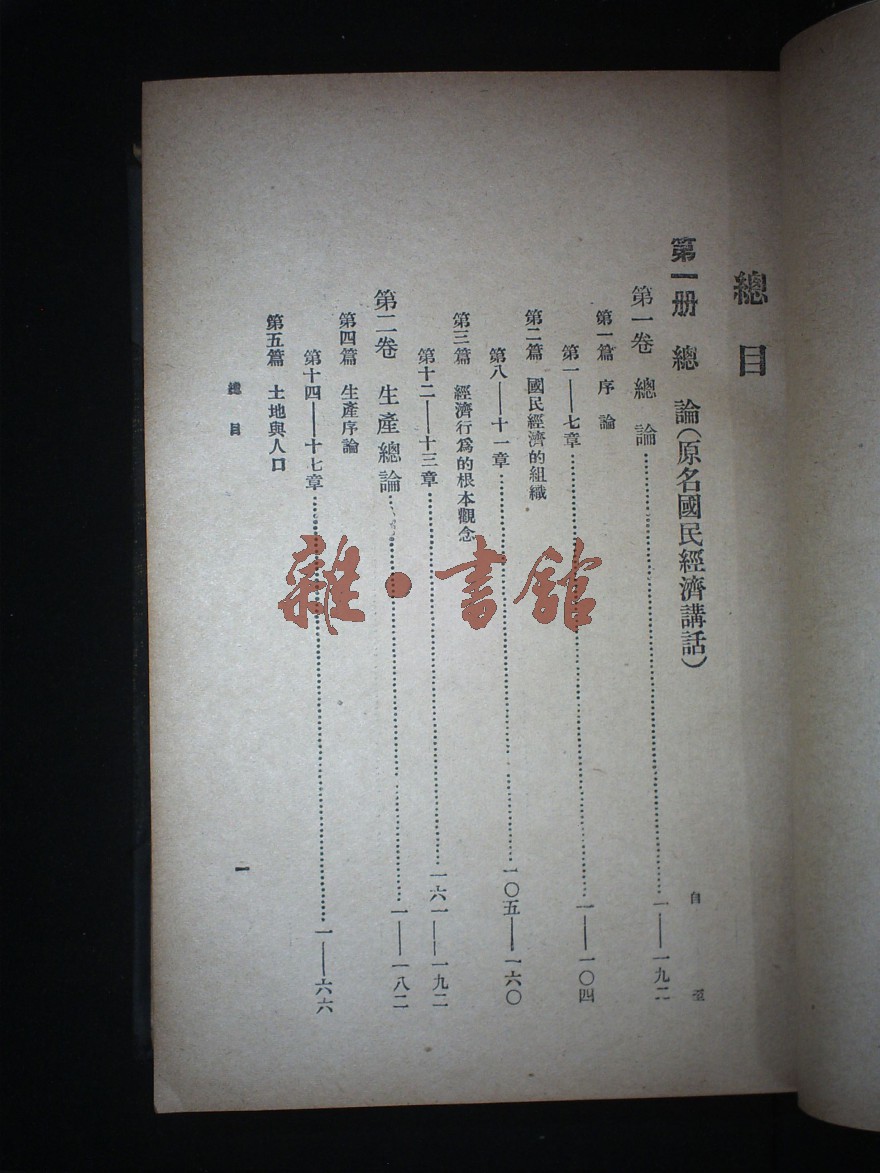 總目
第一册 總 論(原名國民經濟講話)
自 至
第一卷 總論……一——一九二
第一篇 序論
第一——七章……一——一〇四
第二篇 國民經濟的組織
第八——十一章……一〇五——一六〇
第三篇 經濟行爲的根本觀念
第十二——十三章……一六一——一九二
第二卷 生產總論……一——一八二
第四篇 生產序論
第十四——十七章……一——六六
第五篇 土地與人口
總目
一
雜·書館